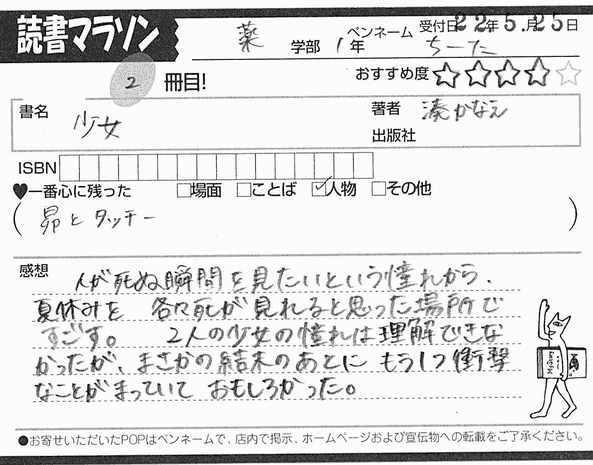 読書マラソン
薬 学部 1年 ペンネーム ちーた 受付日 22年5月25日
2 冊目! おすすめ度 ★★★★☆
書名 少女 著者 湊かなえ
出版社
ISBN
♥一番心に残った □場面 □ことば ☑人物 □その他
(昴とタッチー)
感想
人が死ぬ瞬間を見たいという憧れから、
夏休みを 各々死が見れると思った場所で
すごす。 2人の少女の憧れは理解できな
かったが、まさかの結末のあとに もう1つ衝撃
なことがまっていて おもしろかった。
●お寄せいただいたPOPはペンネームで、店内で掲示、ホームページおよび宣伝物への転載をご了承ください。